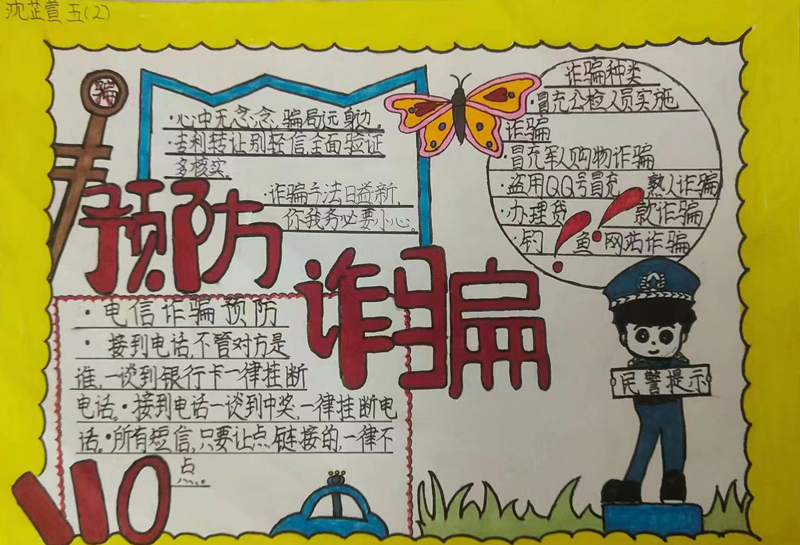 沈芷萱 五(2)
骗
·心中无贪念,骗局远身边。
·吉利转让别轻信,全面验证
多核实。
·诈骗手法日益新,
你我务必要小心。
诈骗种类
·冒充公检人员实施
诈骗
·冒充军人购物诈骗
·盗用QQ号冒充 熟人诈骗
·办理贷!款诈骗
·钓!鱼网站诈骗
预防
诈骗
·电信诈骗预防
·接到电话,不管对方是
谁,一谈到银行卡一律挂断
电话。·接到电话一谈到中奖,一律挂断电
话。·所有短信,只要让点链接的,一律不
点......
民警提示
110